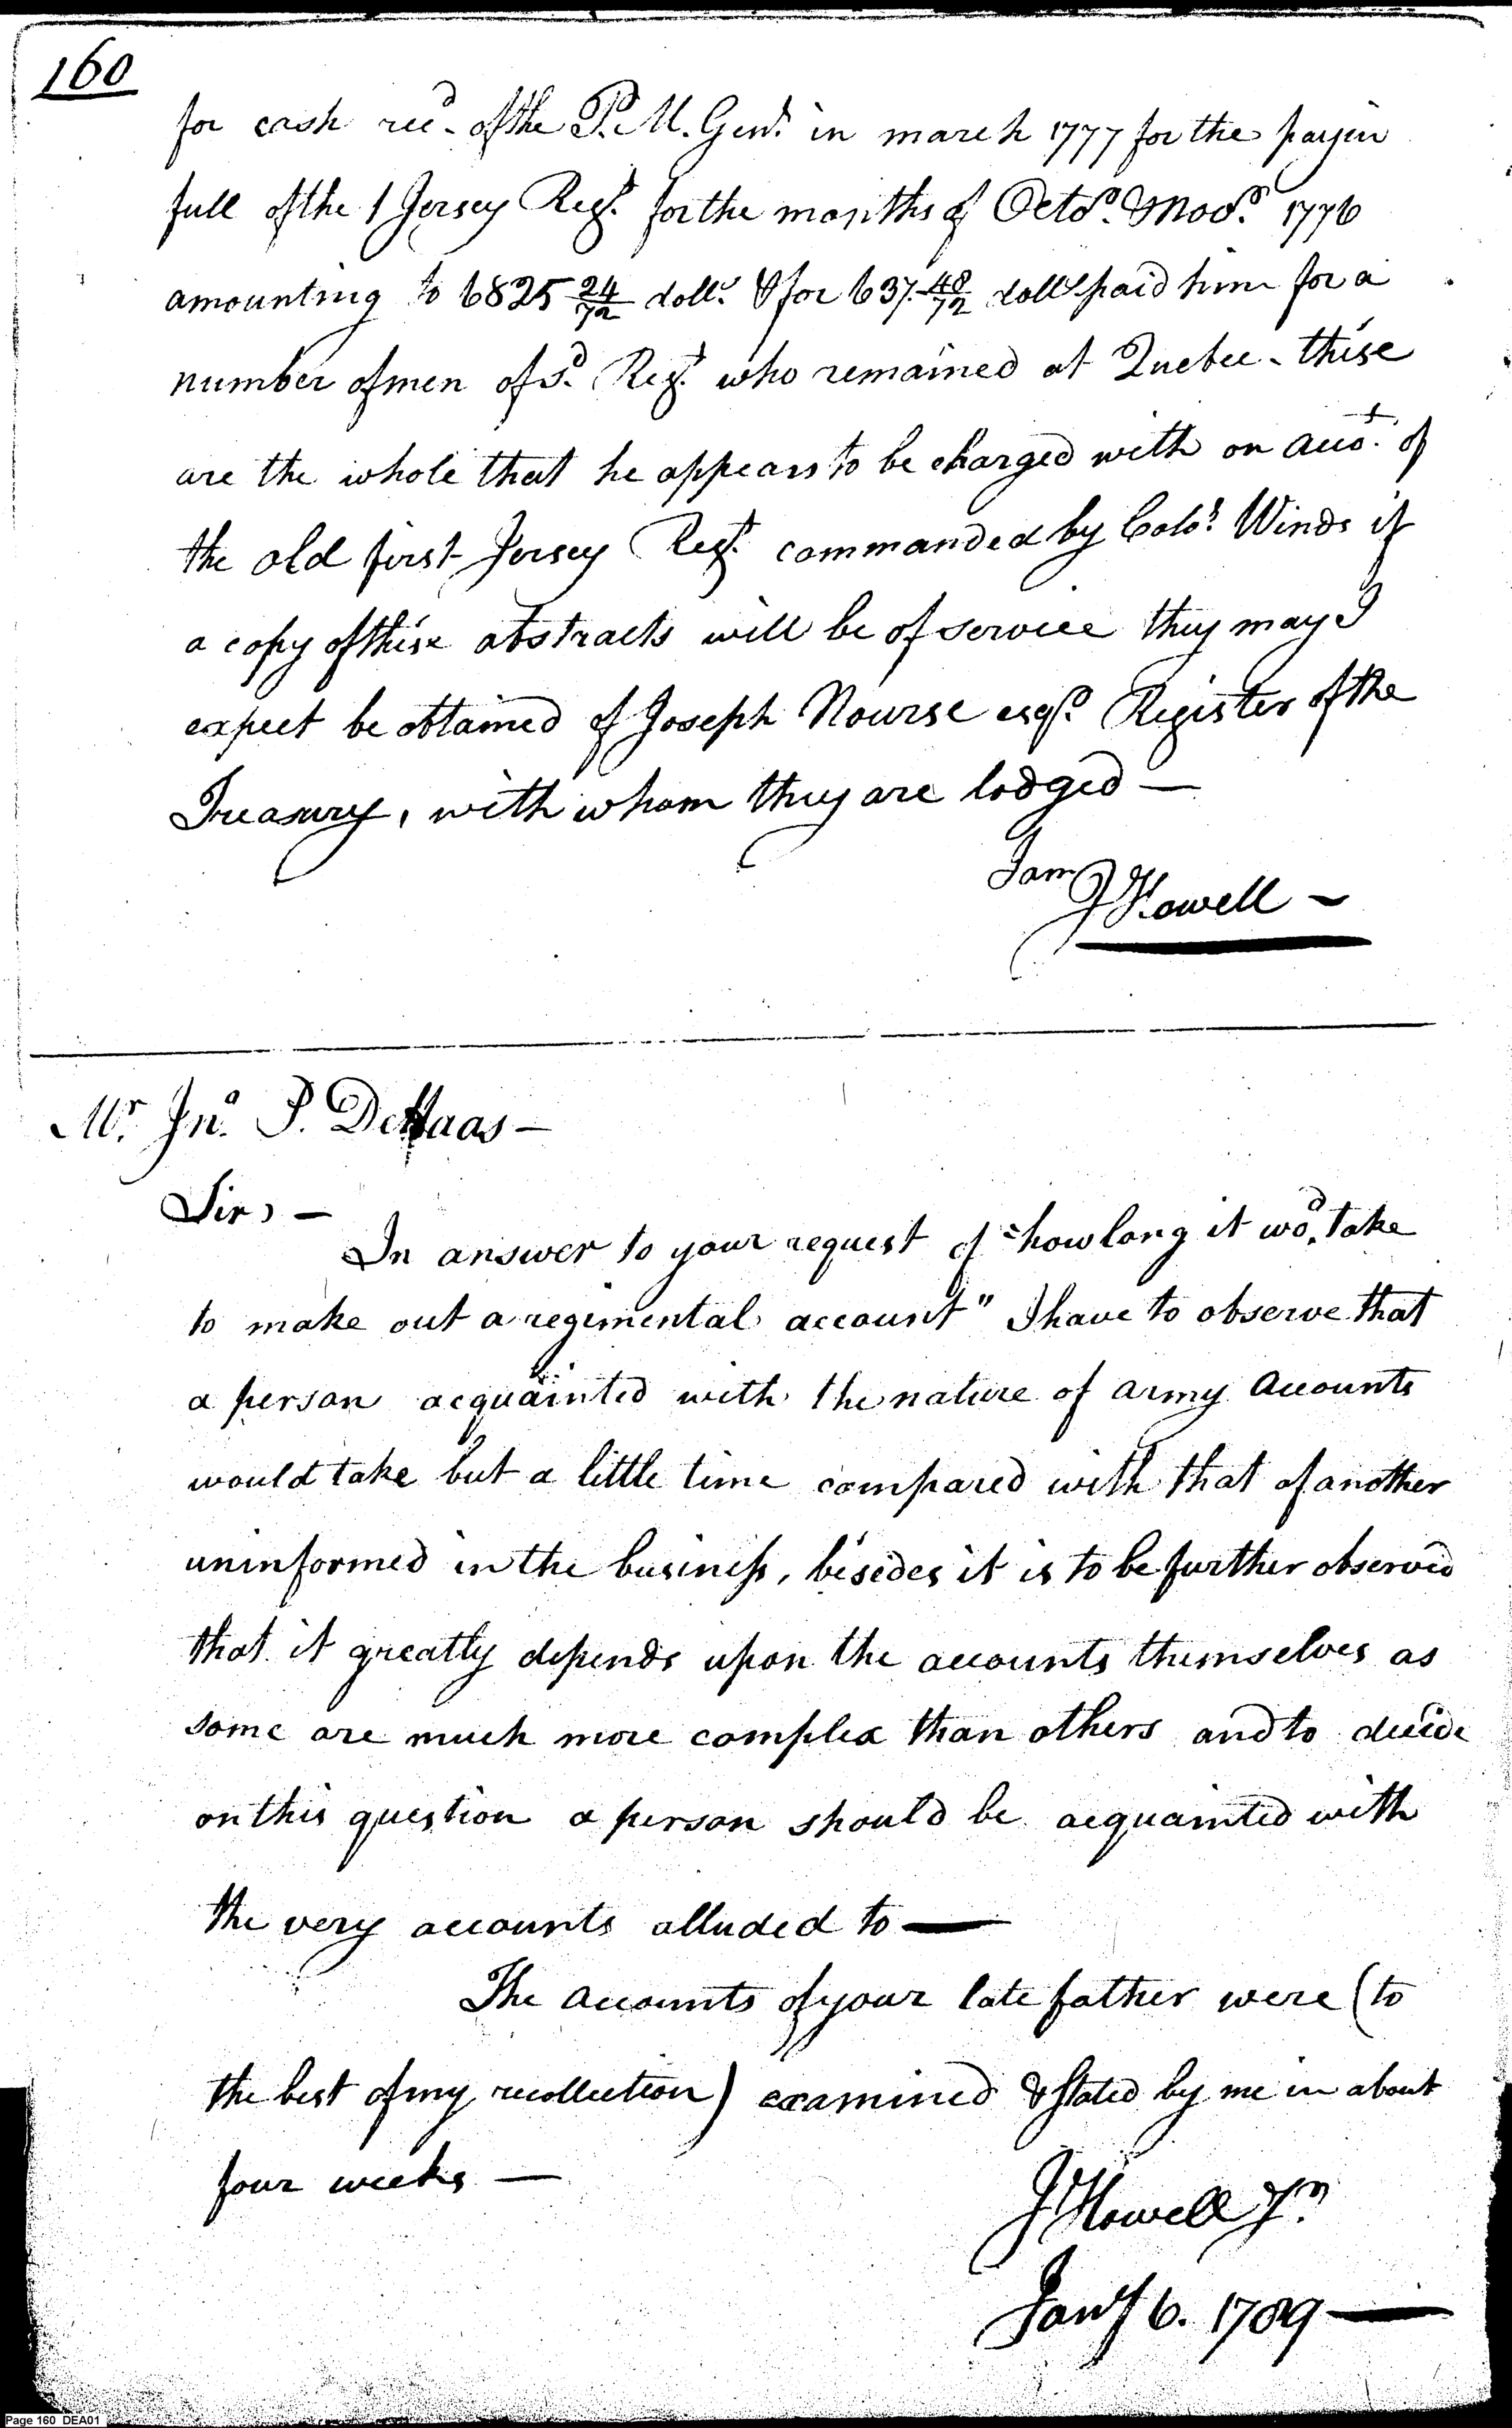 160
for cash rec.d of the P. M. Genl. in march 1777 for the pay in
full of the 1 Jersey Regt. for the months of Octor. & Novr. 1776
amounting to 6825 24/72 dolls. & for 637. 48/72 dolls paid him for a
number of men of sd. Regt. who remained at Quebec - these
are the whole that he appears to be charged with on acco.t of
the old first Jersey Regt. commanded by Colol. Winds if
a copy of these abstracts will be of service they may I
expect be obtained of Joseph Nourse esqr. Register of the
Treasury, with whom they are lodged —
I am
J Howell ~
Mr. Jno. P. DeHaas —
Sir, —
In answer to your request of "how long it wod. take
to make out a regimental account" I have to observe that
a person acquainted with the nature of army accounts
would take but a little time compared with that of another
uninformed in the business, besides it is to be further observed
that it greatly depends upon the accounts themselves as
some are much more complex than others and to decide
on this question a person should be acquainted with
the very accounts alluded to —
The accounts of your late father were (to
the best of my recollection) examined & stated by me in about
four weeks —
J Howell Jr.
Jany 6. 1789 —
Page 160 DEA01